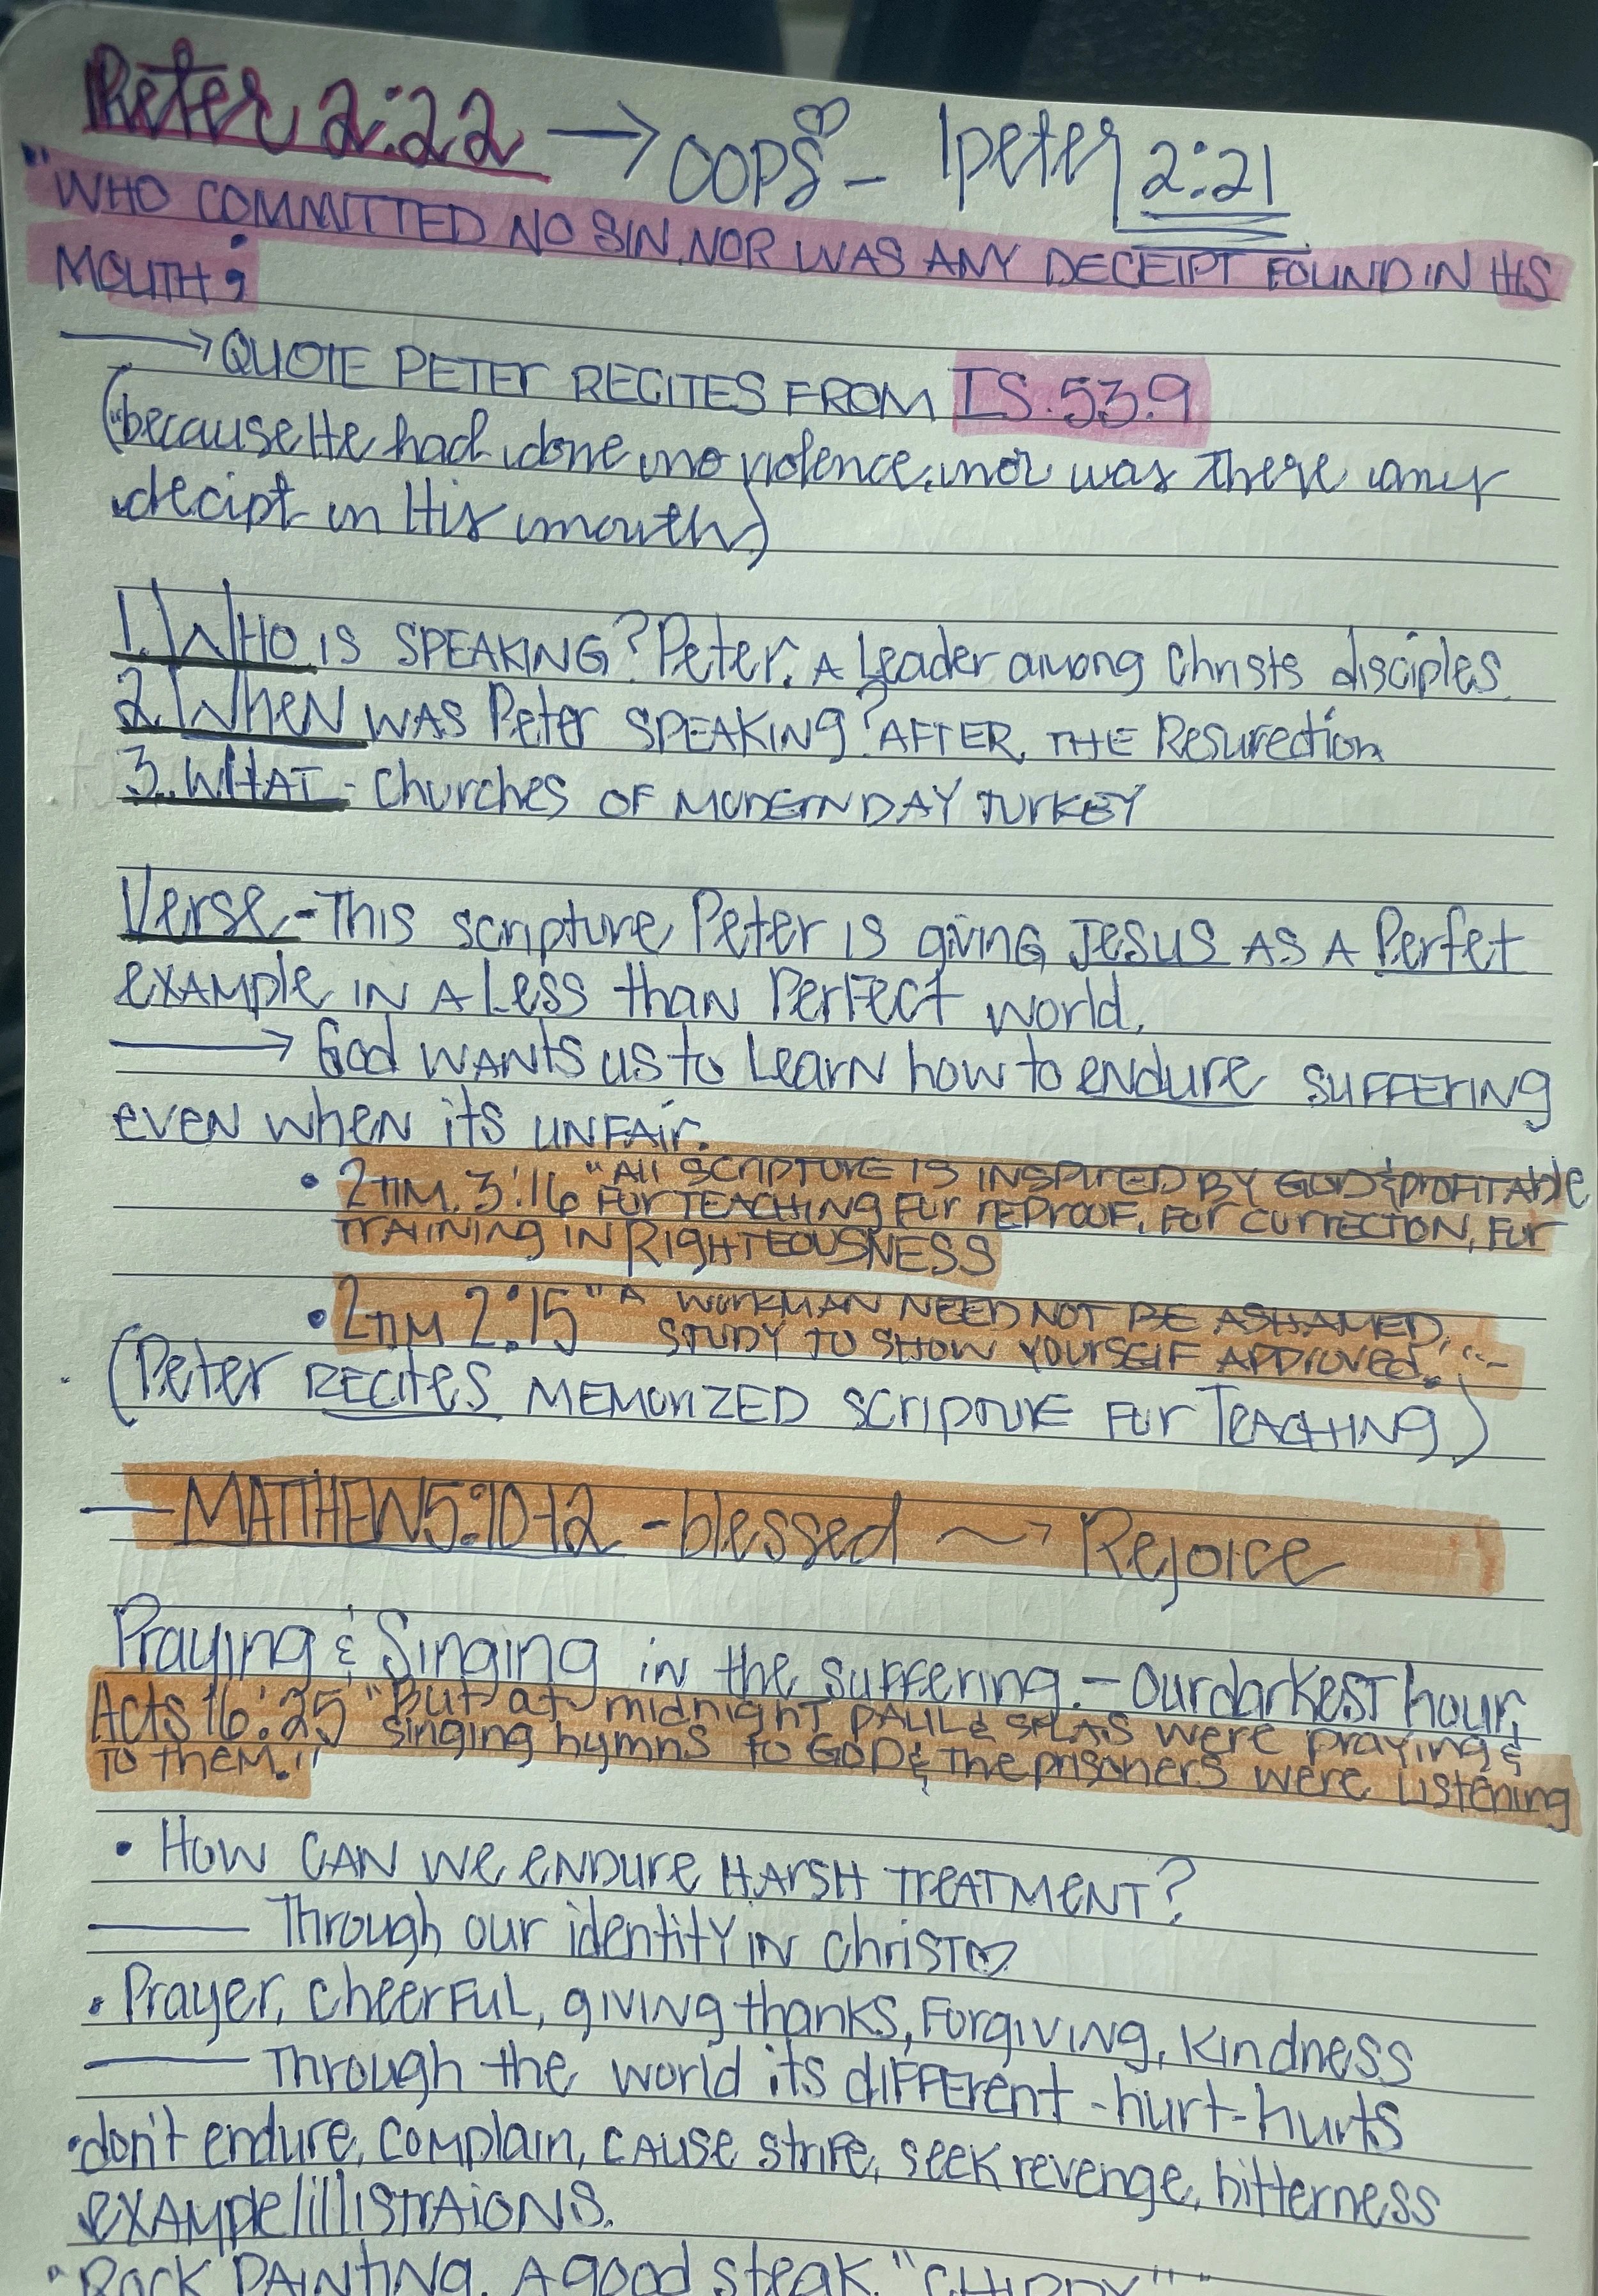 Peter 2:22 → OOPS – 1peter 2:21
"WHO COMMITTED NO SIN, NOR WAS ANY DECEIPT FOUND IN HIS
MOUTH;
→ QUOTE PETER RECITES FROM IS. 53.9
("because He had done no violence, nor was there any
decipt in His mouth)
1. WHO IS SPEAKING? Peter. A Leader among Christs disciples
2. WHEN WAS Peter SPEAKING? AFTER, THE Resurection
3. WHAT - Churches OF MODERN DAY TURKEY
Verse - This scripture Peter is giving Jesus AS A Perfet
EXAMPLE IN A Less than Perfect world.
→ God WANTS us to Learn how to endure SUFFERING
even when its UNFAIR.
• 2TIM. 3:16 "All SCRIPTURE IS INSPIRED BY GOD & PROFITABLE
FOR TEACHING FOR REPROOF, FOR CORRECTION, FOR
TRAINING IN RIGHTEOUSNESS
• 2TIM 2:15 "A WORKMAN NEED NOT BE ASHAMED,
STUDY TO SHOW YOURSELF APPROVED."
(Peter RECITES MEMORIZED SCRIPTURE FOR TEACHING)
— MATTHEW 5:10-12 - blessed ~→ Rejoice
Praying & Singing in the suffering. – Our darkest hour,
Acts 16:25 "But at midnight PAUL & SILAS were praying &
singing hymns to GOD & the prisoners were Listening
TO THEM."
• How CAN we endure HARSH TREATMENT?
— Through our identity in Christ ♡
• Prayer, cheerful, giving thanks, Forgiving, kindness
— Through the world its different - hurt-hurts
• don't endure, complain, cause strife, seek revenge, bitterness
EXAMPLE/illistraions.
• Rock PAINTING, A good steak, "CHIPPY"